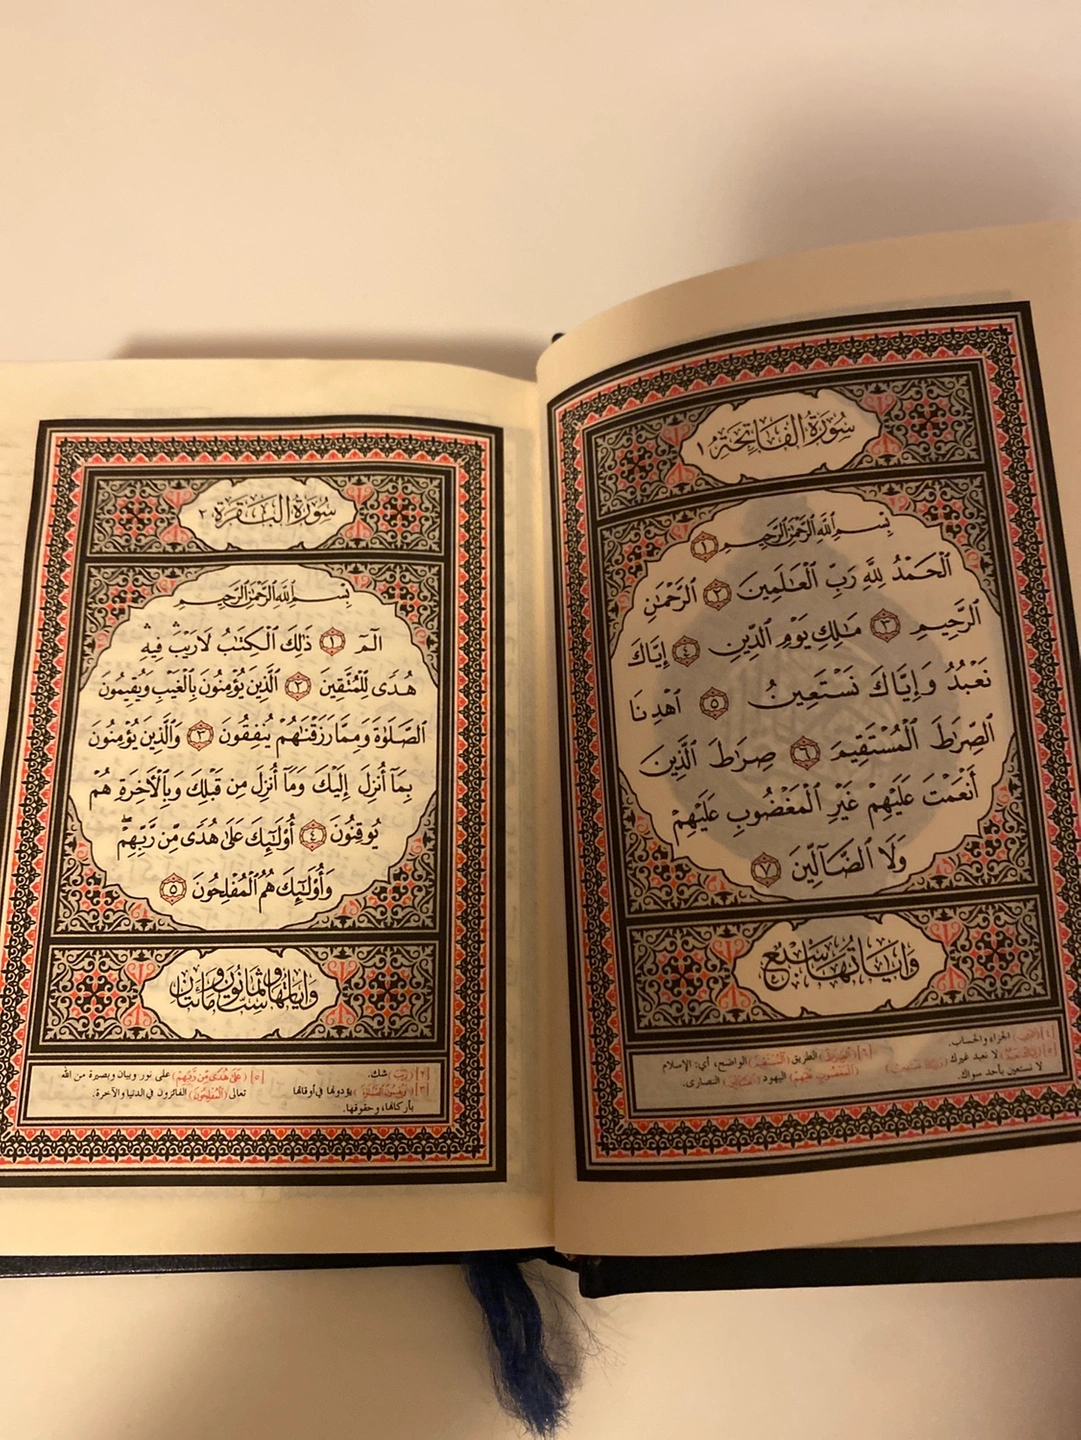 سُورَةُ الفَاتِحَة ١
بِسْمِ ٱللَّهِ ٱلرَّحْمَٰنِ ٱلرَّحِيمِ ١
ٱلْحَمْدُ لِلَّهِ رَبِّ ٱلْعَٰلَمِينَ ٢ ٱلرَّحْمَٰنِ
ٱلرَّحِيمِ ٣ مَٰلِكِ يَوْمِ ٱلدِّينِ ٤ إِيَّاكَ
نَعْبُدُ وَإِيَّاكَ نَسْتَعِينُ ٥ ٱهْدِنَا
ٱلصِّرَٰطَ ٱلْمُسْتَقِيمَ ٦ صِرَٰطَ ٱلَّذِينَ
أَنْعَمْتَ عَلَيْهِمْ غَيْرِ ٱلْمَغْضُوبِ عَلَيْهِمْ
وَلَا ٱلضَّآلِّينَ ٧
وَآيَاتُهَا سَبْعٌ
[٤] (الدين) الجزاء والحساب.
[٥] لا نعبد غيرك
لا نستعين بأحد سواك.
[٦] (الصراط) الطريق (المستقيم) الواضح، أي: الإسلام
(المغضوب عليهم) اليهود (الضالين) النصارى.
سُورَةُ البَقَرَة ٢
بِسْمِ ٱللَّهِ ٱلرَّحْمَٰنِ ٱلرَّحِيمِ
الٓمٓ ١ ذَٰلِكَ ٱلْكِتَٰبُ لَا رَيْبَۛ فِيهِۛ
هُدًى لِّلْمُتَّقِينَ ٢ ٱلَّذِينَ يُؤْمِنُونَ بِٱلْغَيْبِ وَيُقِيمُونَ
ٱلصَّلَوٰةَ وَمِمَّا رَزَقْنَٰهُمْ يُنفِقُونَ ٣ وَٱلَّذِينَ يُؤْمِنُونَ
بِمَآ أُنزِلَ إِلَيْكَ وَمَآ أُنزِلَ مِن قَبْلِكَ وَبِٱلْأَخِرَةِ هُمْ
يُوقِنُونَ ٤ أُو۟لَٰٓئِكَ عَلَىٰ هُدًى مِّن رَّبِّهِمْۖ
وَأُو۟لَٰٓئِكَ هُمُ ٱلْمُفْلِحُونَ ٥
وَآيَاتُهَا سِتٌّ وَثَمَانُونَ وَمِائَتَانِ
[٢] (ريب) شك.
[٣] (ويقيمون الصلاة) يؤدونها في أوقاتها
بأركانها، وحقوقها.
[٥] (على هدى من ربهم) على نور وبيان وبصيرة من الله
تعالى (المفلحون) الفائزون في الدنيا والآخرة.